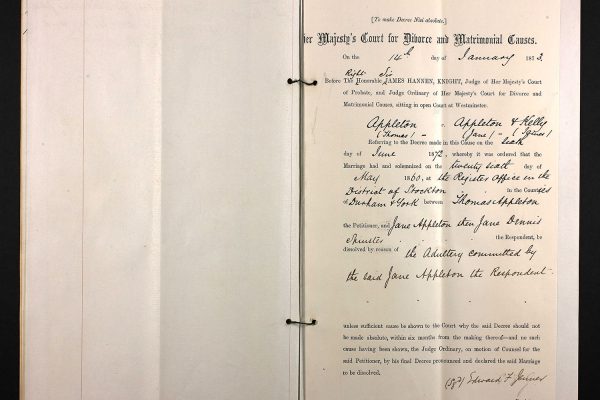 [To make Decree Nisi absolute.]
er Majesty's Court for Divorce and Matrimonial Causes.
On the 14th day of January 1873.
Right Sir
Before The Honorable JAMES HANNEN, KNIGHT, Judge of Her Majesty's Court
of Probate, and Judge Ordinary of Her Majesty's Court for Divorce and
Matrimonial Causes, sitting in open Court at Westminster.
Appleton v. Appleton & Kelly
(Thomas) (Jane)
Referring to the Decree made in this Cause on the sixth
day of June 1872, whereby it was ordered that the
Marriage had and solemnized on the twenty sixth day of
May 1860, at the Register Office in the
District of Stockton in the Counties
of Durham & York between Thomas Appleton
the Petitioner, and Jane Appleton then Jane Dennis
Spinster the Respondent, be
dissolved by reason of the Adultery committed by
the said Jane Appleton the Respondent
unless sufficient cause be shown to the Court why the said Decree should not
be made absolute, within six months from the making thereof—and no such
cause having been shown, the Judge Ordinary, on motion of Counsel for the
said Petitioner, by his final Decree pronounced and declared the said Marriage
to be dissolved.
Edward F Jenner